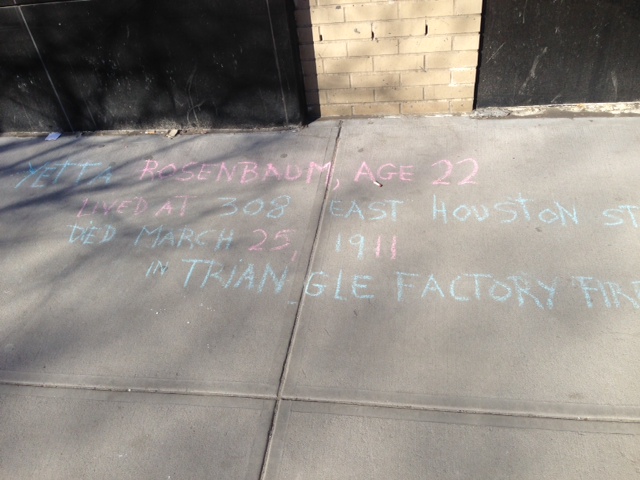 YETTA ROSENBAUM, AGE 22
LIVED AT 308 EAST HOUSTON ST
DIED MARCH 25, 1911
IN TRIANGLE FACTORY FIRE